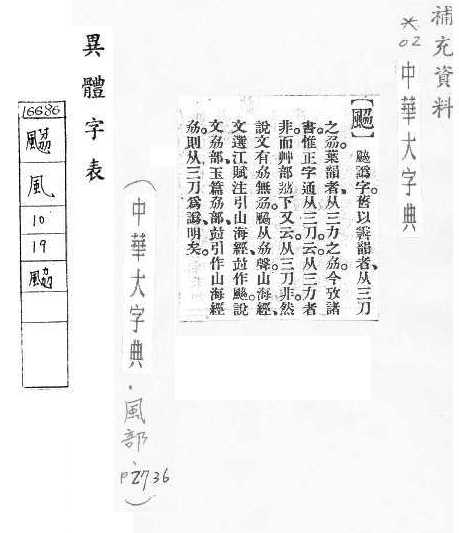 補充資料
※02 中華大字典
䬅譌字。舊以辨韻者、从三刀
之刕。葉韻者、从三力之劦。今攷諸
書。惟正字通从三刀。云从三力者
非。而艸部荔下又云。从三刀非。然
說文有劦無刕。䬅从劦聲。山海經、
文選江賦注引山海經竝作䬅。說
文劦部、玉篇劦部、竝引作山海經
劦。則从三刀爲譌、明矣。
(中華大字典・風部、P2736)
異體字表
16686
風
10
19